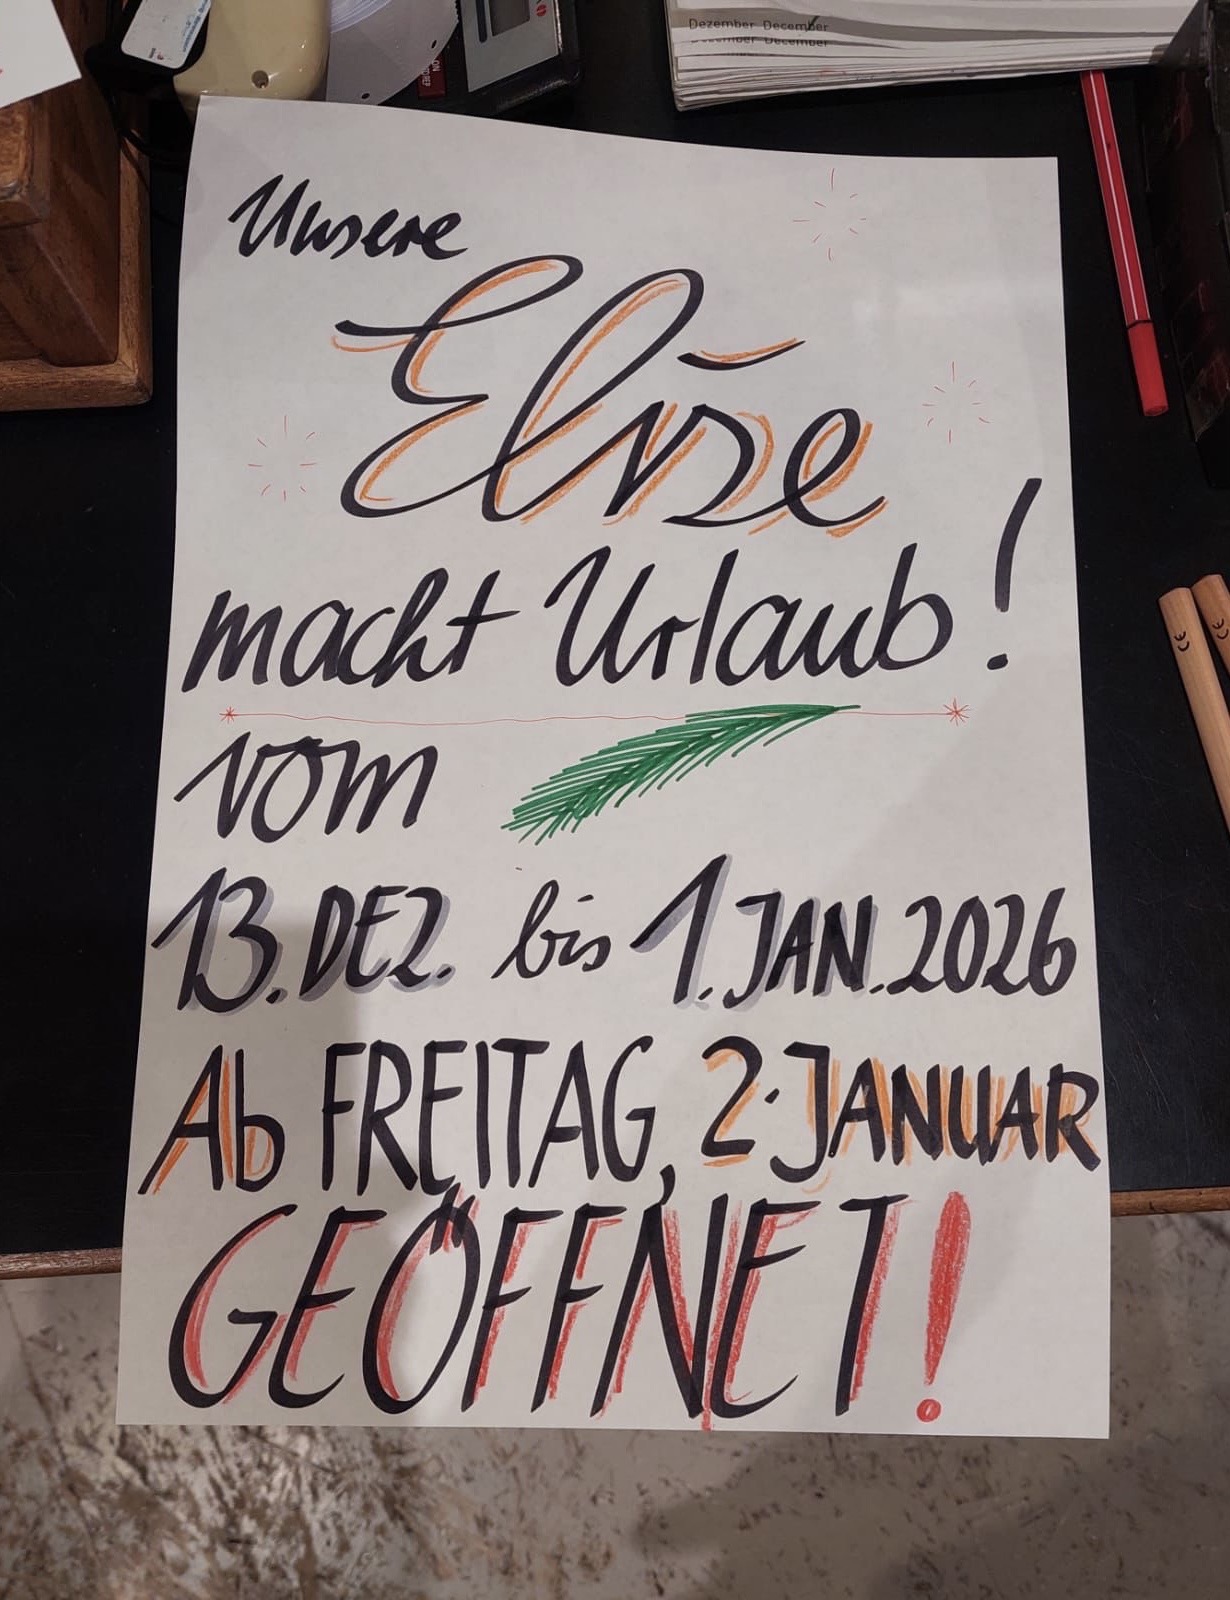 Dezember December
Dezember December
Unsere
Elise
macht Urlaub!
vom
13. DEZ. bis 1. JAN. 2026
Ab FREITAG, 2. JANUAR
GEÖFFNET!